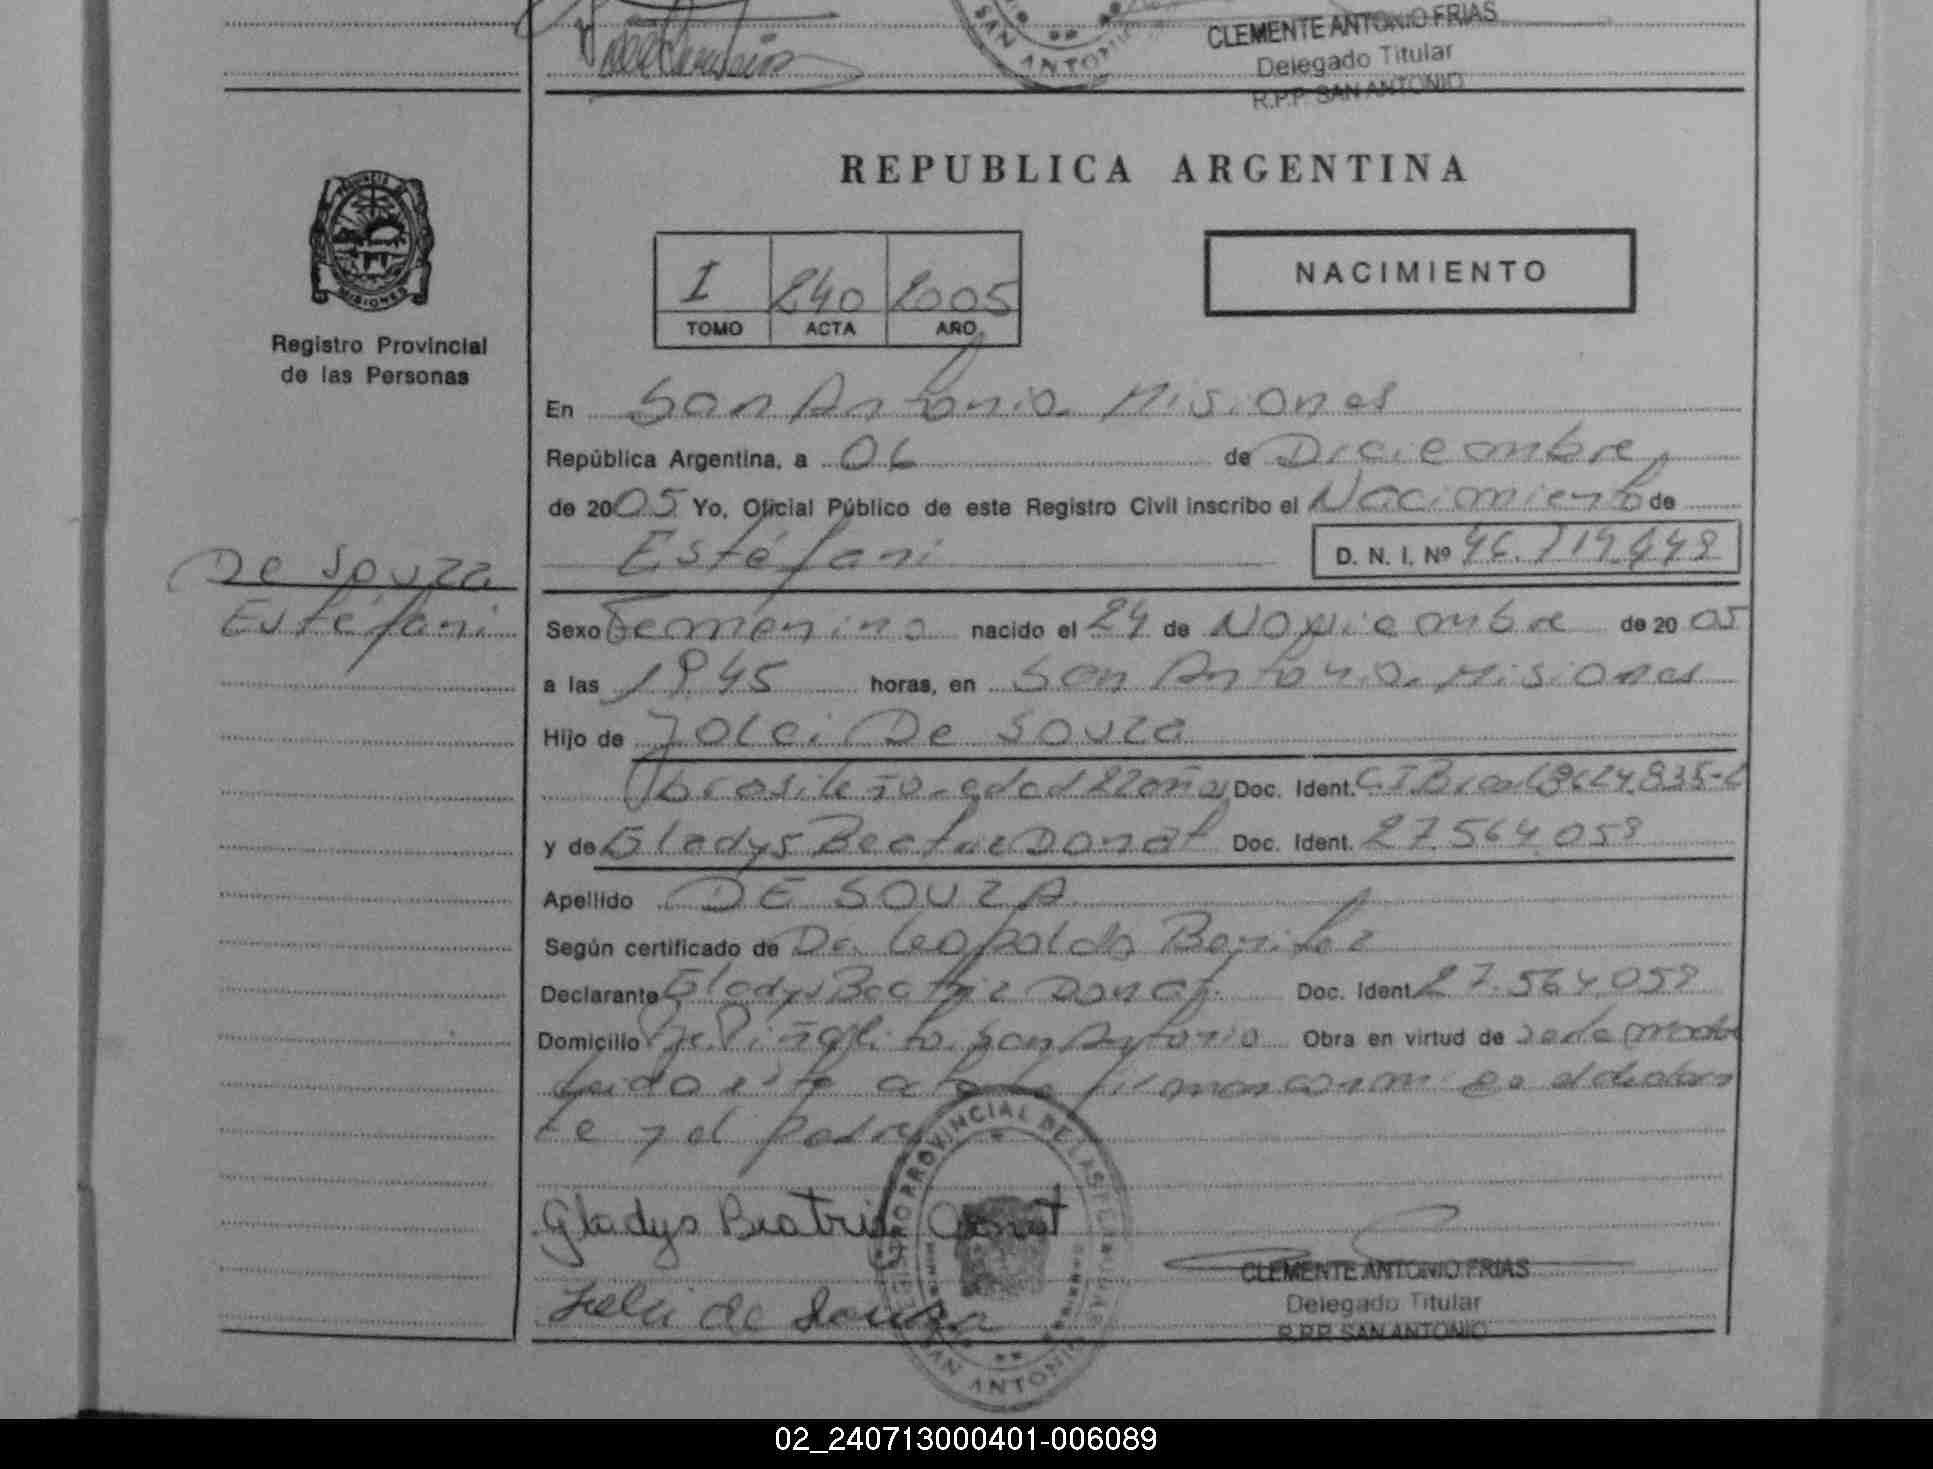 CLEMENTE ANTONIO FRIAS
Delegado Titular
R.P.P. SAN ANTONIO
SAN ANTONIO
REPUBLICA ARGENTINA
PROVINCIA DE
MISIONES
Registro Provincial
de las Personas
I 240 2005
TOMO ACTA AÑO
NACIMIENTO
En San Antonio Misiones
República Argentina, a 06 de Diciembre
de 2005 Yo, Oficial Público de este Registro Civil inscribo el Nacimiento de
Estéfani D. N. I. Nº
De Souza
Estéfani
Sexo Femenino nacido el 24 de Noviembre de 2005
a las 19.45 horas, en San Antonio Misiones
Hijo de Jolci De Souza
brasileño edad 22 años Doc. Ident.
y de Gladys Beatriz Donat Doc. Ident. 27.564.059
Apellido DE SOUZA
Según certificado de Dr. Leopoldo Benitez
Declarante Gladys Beatriz Donat Doc. Ident. 27.564.059
Domicilio Piñalito San Antonio Obra en virtud de
Leido este acta firman conmigo el declaran
te y el padre
Gladys Beatriz Donat
de Souza
REGISTRO PROVINCIAL DE LAS PERSONAS
SAN ANTONIO
CLEMENTE ANTONIO FRIAS
Delegado Titular
R.P.P. SAN ANTONIO
02_240713000401-006089